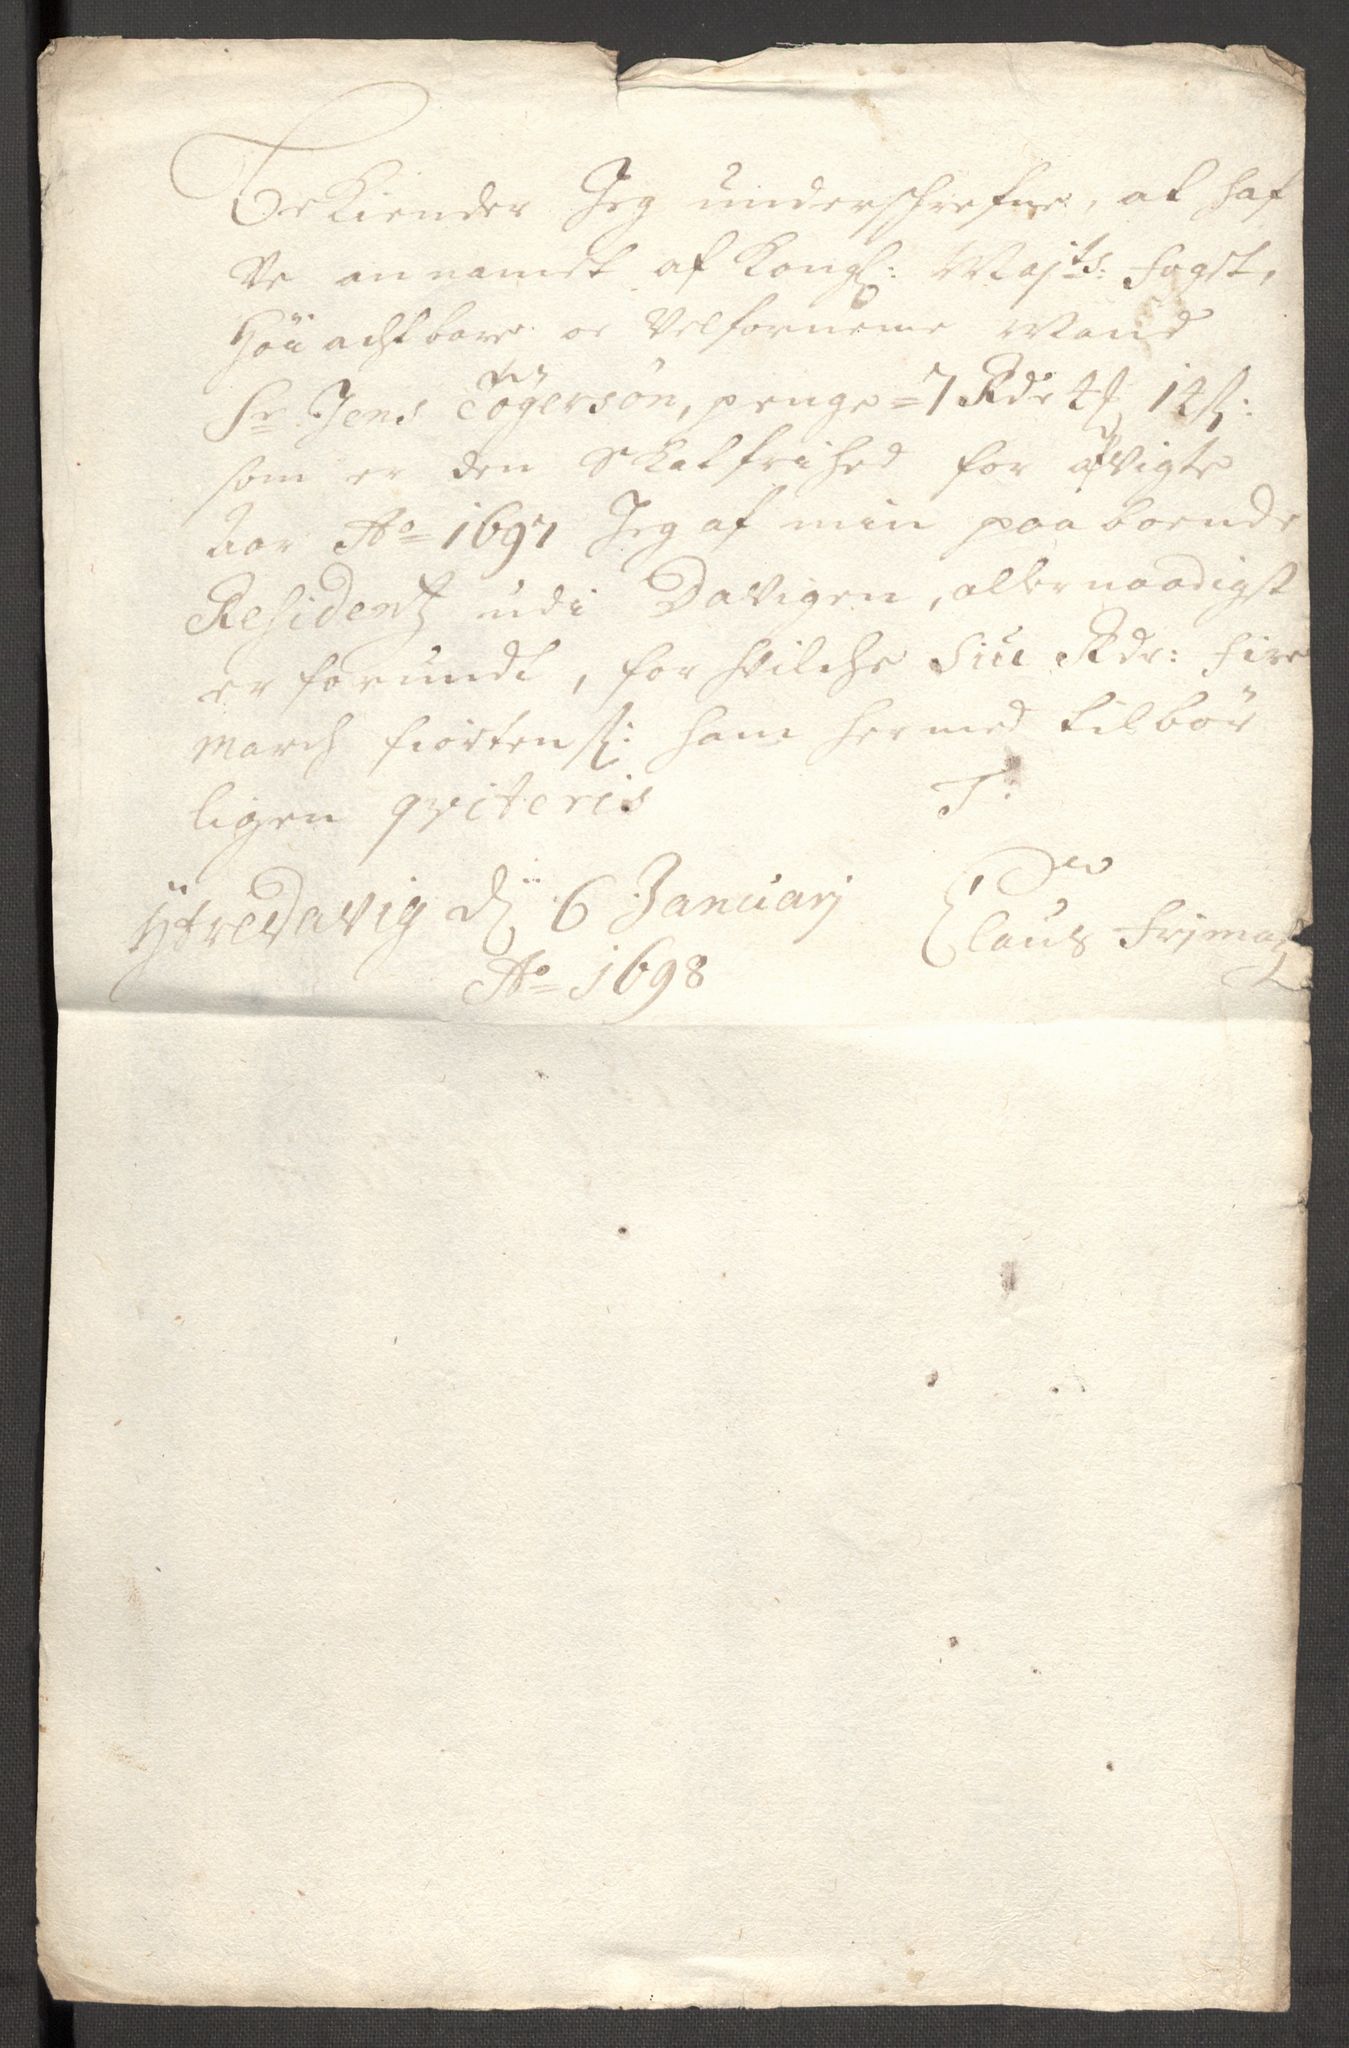 Bekiender Jeg underschrefne, at haf
ve annamet af Kongl: Maj:ts: fogt,
Höiachtbare oc Velfornemme Mand
Sr. Jens Tögersön, penge = 7 Rdr 4 # 14 s:
som er den skatfrihed for afvigte
Aar Ao = 1697 Jeg af min paaboende
Residentz udi Davigen, allernaadigst
er forundt, for hvilche Siu Rdr: fire
March fiorten s: ham hermed tilbör
ligen qviteris T:
Ytredavig d 6 Januarj Claus Frjma
Ao = 1698